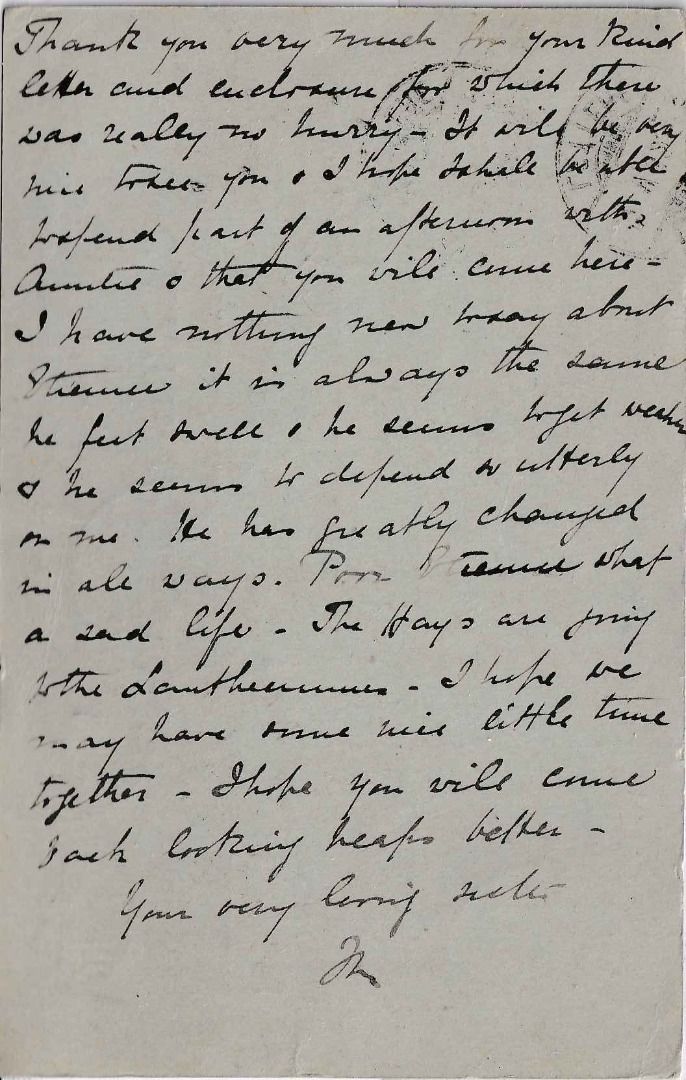 Thank you very much for your kind
letter and enclosure for which there
was really no hurry - It will be very
nice to see you & I hope I shall be able
to spend part of an afternoon with
Auntie & that you will come here -
I have nothing new to say about
Etienne it is always the same
he feet swell & he seems to get weaker
& he seems to depend so utterly
on me. He has greatly changed
in all ways. Poor Etienne what
a sad life - The Hays are going
to the - I hope we
may have some nice little time
together - I hope you will come
back looking heaps better -
Your very loving sister